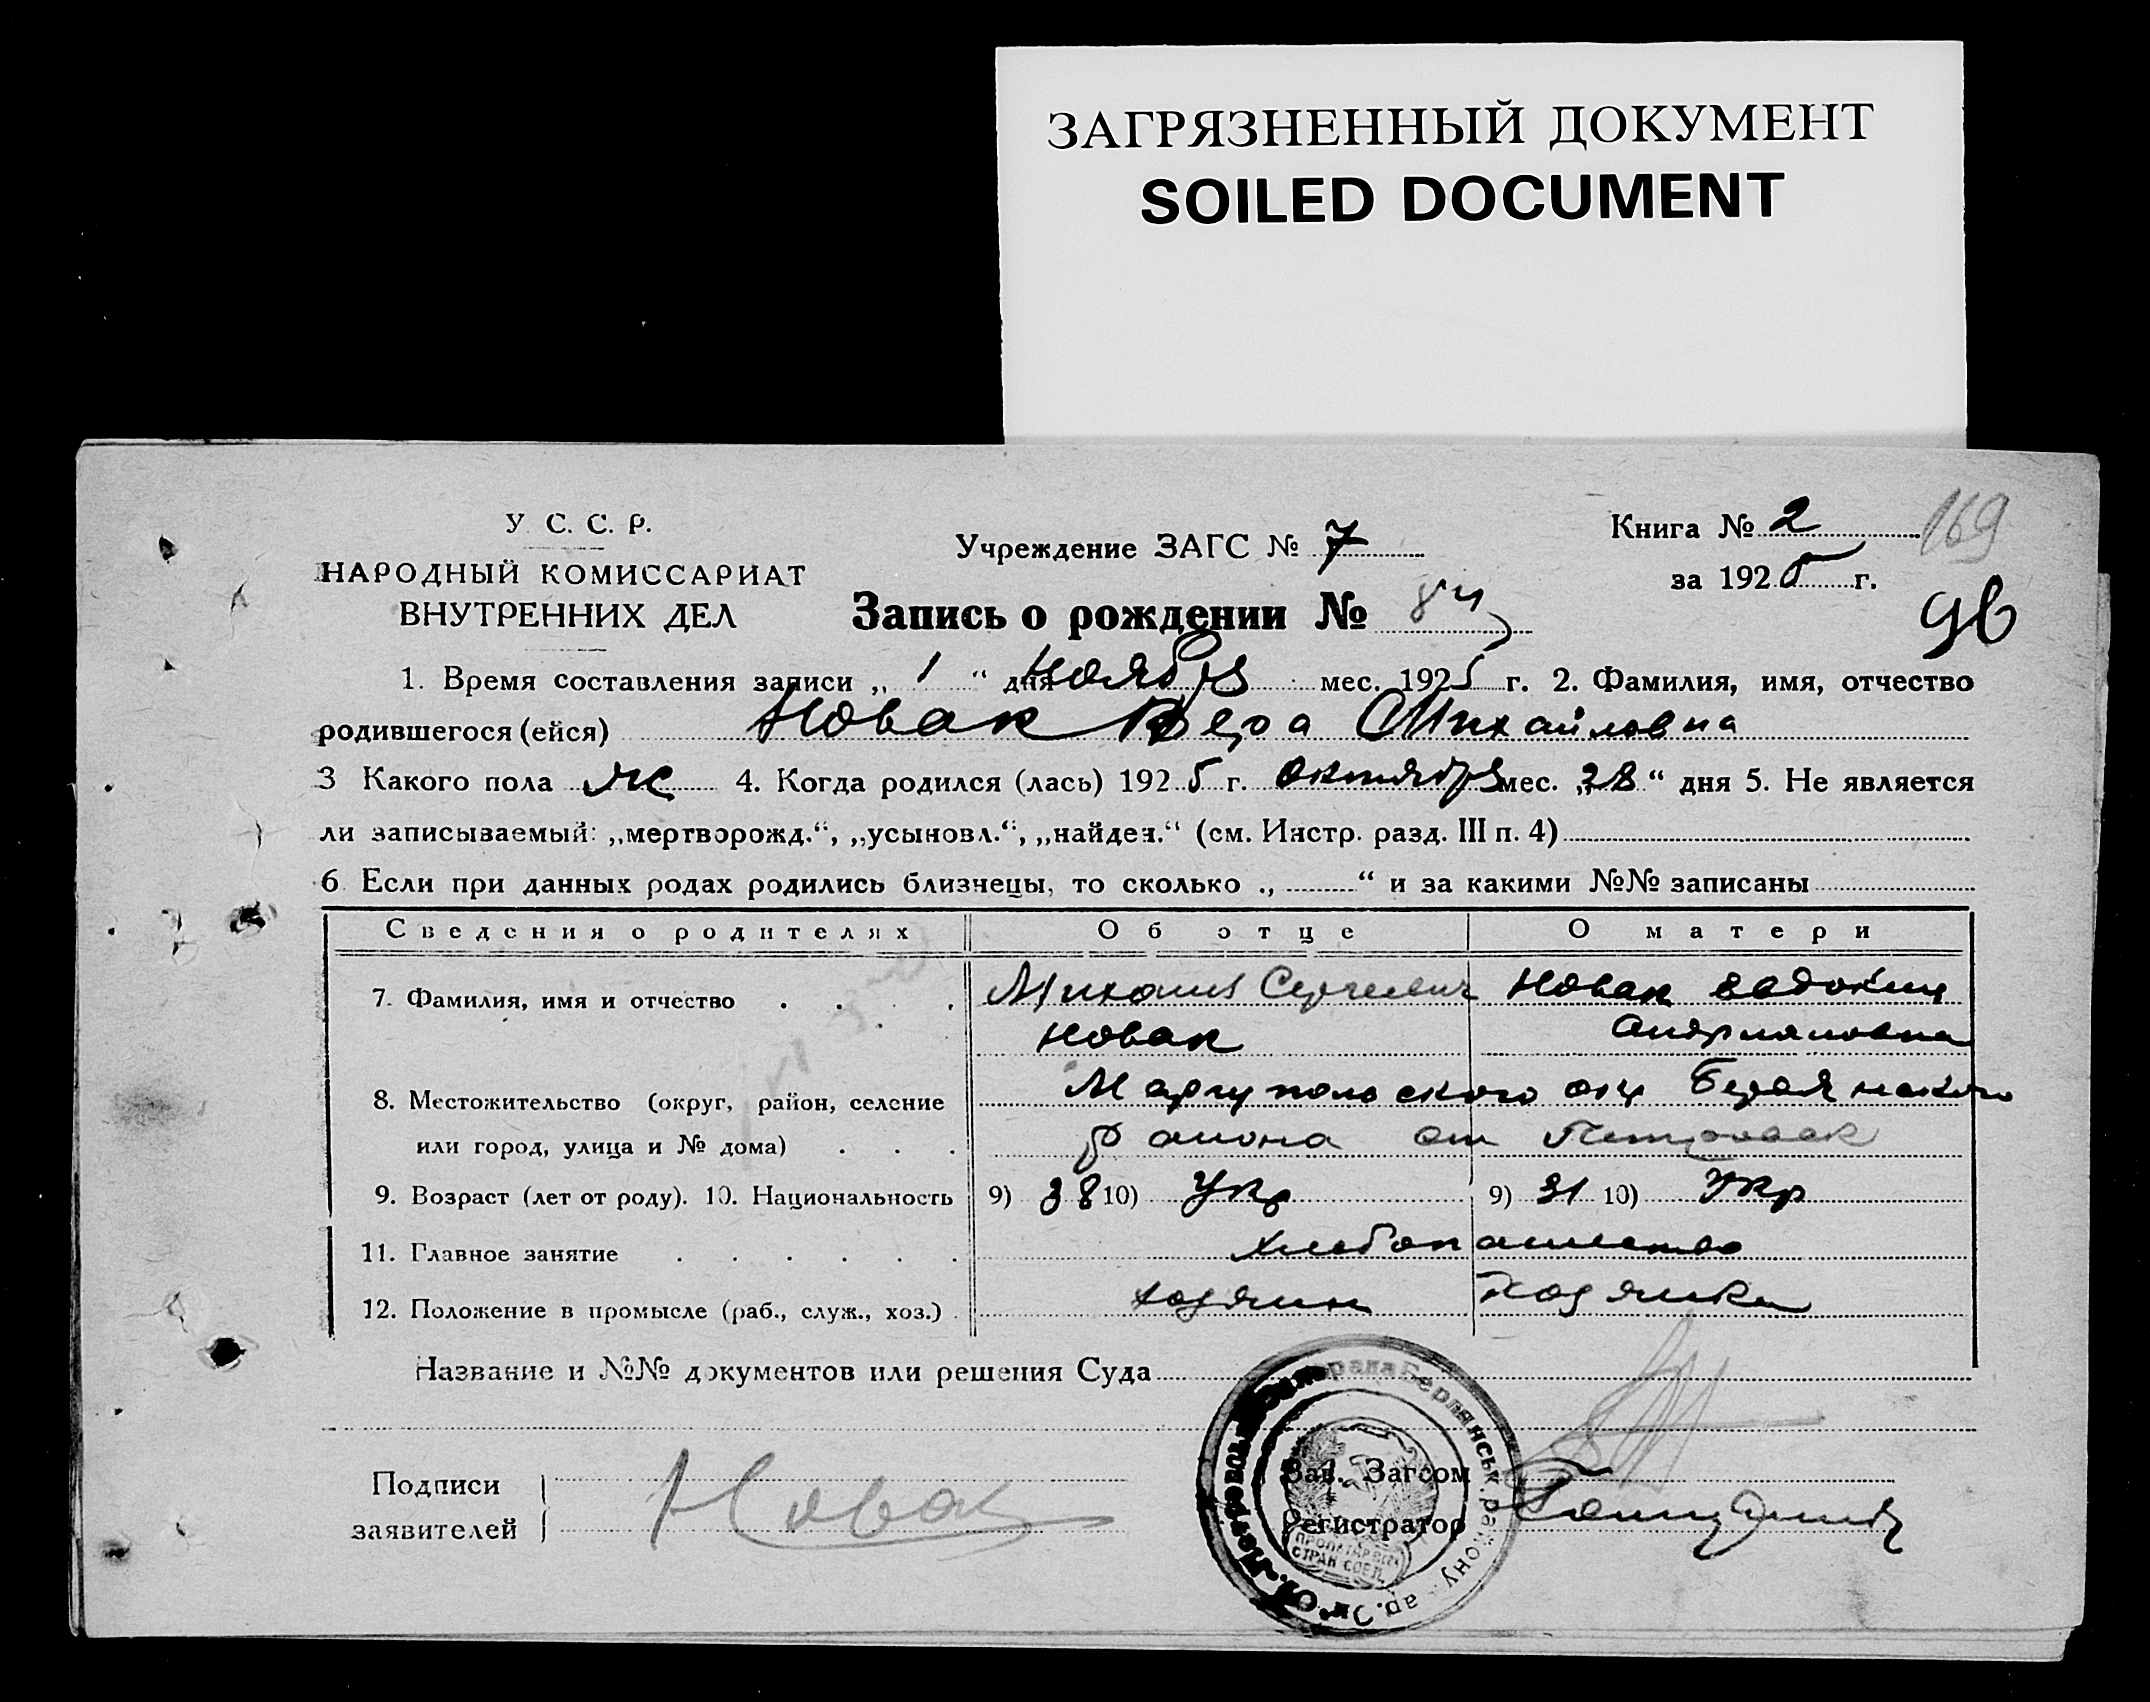 ЗАГРЯЗНЕННЫЙ ДОКУМЕНТ
SOILED DOCUMENT
У. С. С. Р.
НАРОДНЫЙ КОМИССАРИАТ
ВНУТРЕННИХ ДЕЛ
Учреждение ЗАГС № 7
Книга № 2
169
за 1925 г.
Запись о рождении №
1. Время составления записи „ 1 “ дня Ноября мес. 1925 г. 2. Фамилия, имя, отчество
родившегося (ейся) Новак Вера Михайловна
3 Какого пола ж 4. Когда родился (лась) 1925 г. Октября мес. „28“ дня 5. Не является
ли записываемый: „мертворожд.“, „усыновл.“, „найден.“ (см. Инстр. разд. III п. 4)
6 Если при данных родах родились близнецы, то сколько „ “ и за какими №№ записаны
Сведения о родителях Об отце О матери
7. Фамилия, имя и отчество Михаил Сергеевич Новак Евдокия
Новак Андрияновна
8. Местожительство (округ, район, селение Мариупольского окр Бердянского
или город, улица и № дома) района
9. Возраст (лет от роду). 10. Национальность 9) 38 10) Укр 9) 31 10) Укр
11. Главное занятие Хлебопашество
12. Положение в промысле (раб., служ., хоз.) хозяин хозяйка
Название и №№ документов или решения Суда
Подписи
заявителей Новак
Зав. Загсом
Регистратор
Бердянськ. району
ПРОЛЕТАРІ ВСІХ